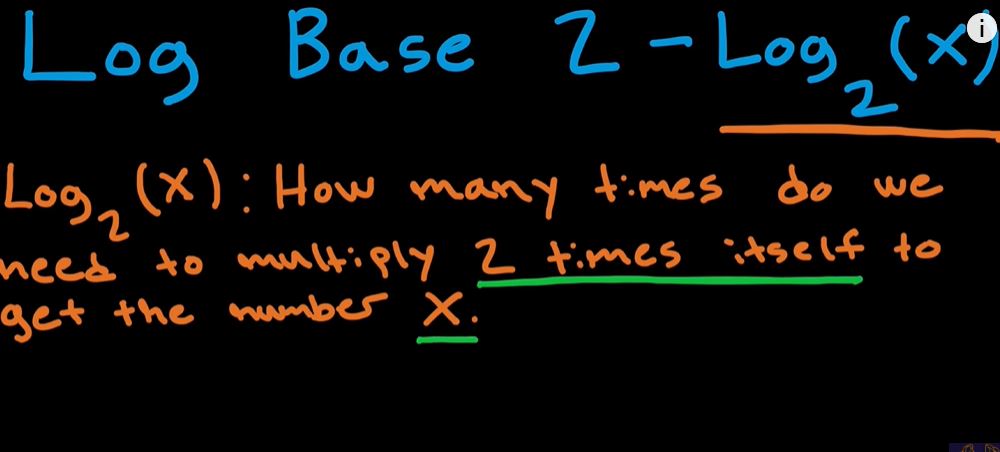 Log Base 2 - Log₂(x)
Log₂(x): How many times do we
need to multiply 2 times itself to
get the number x.